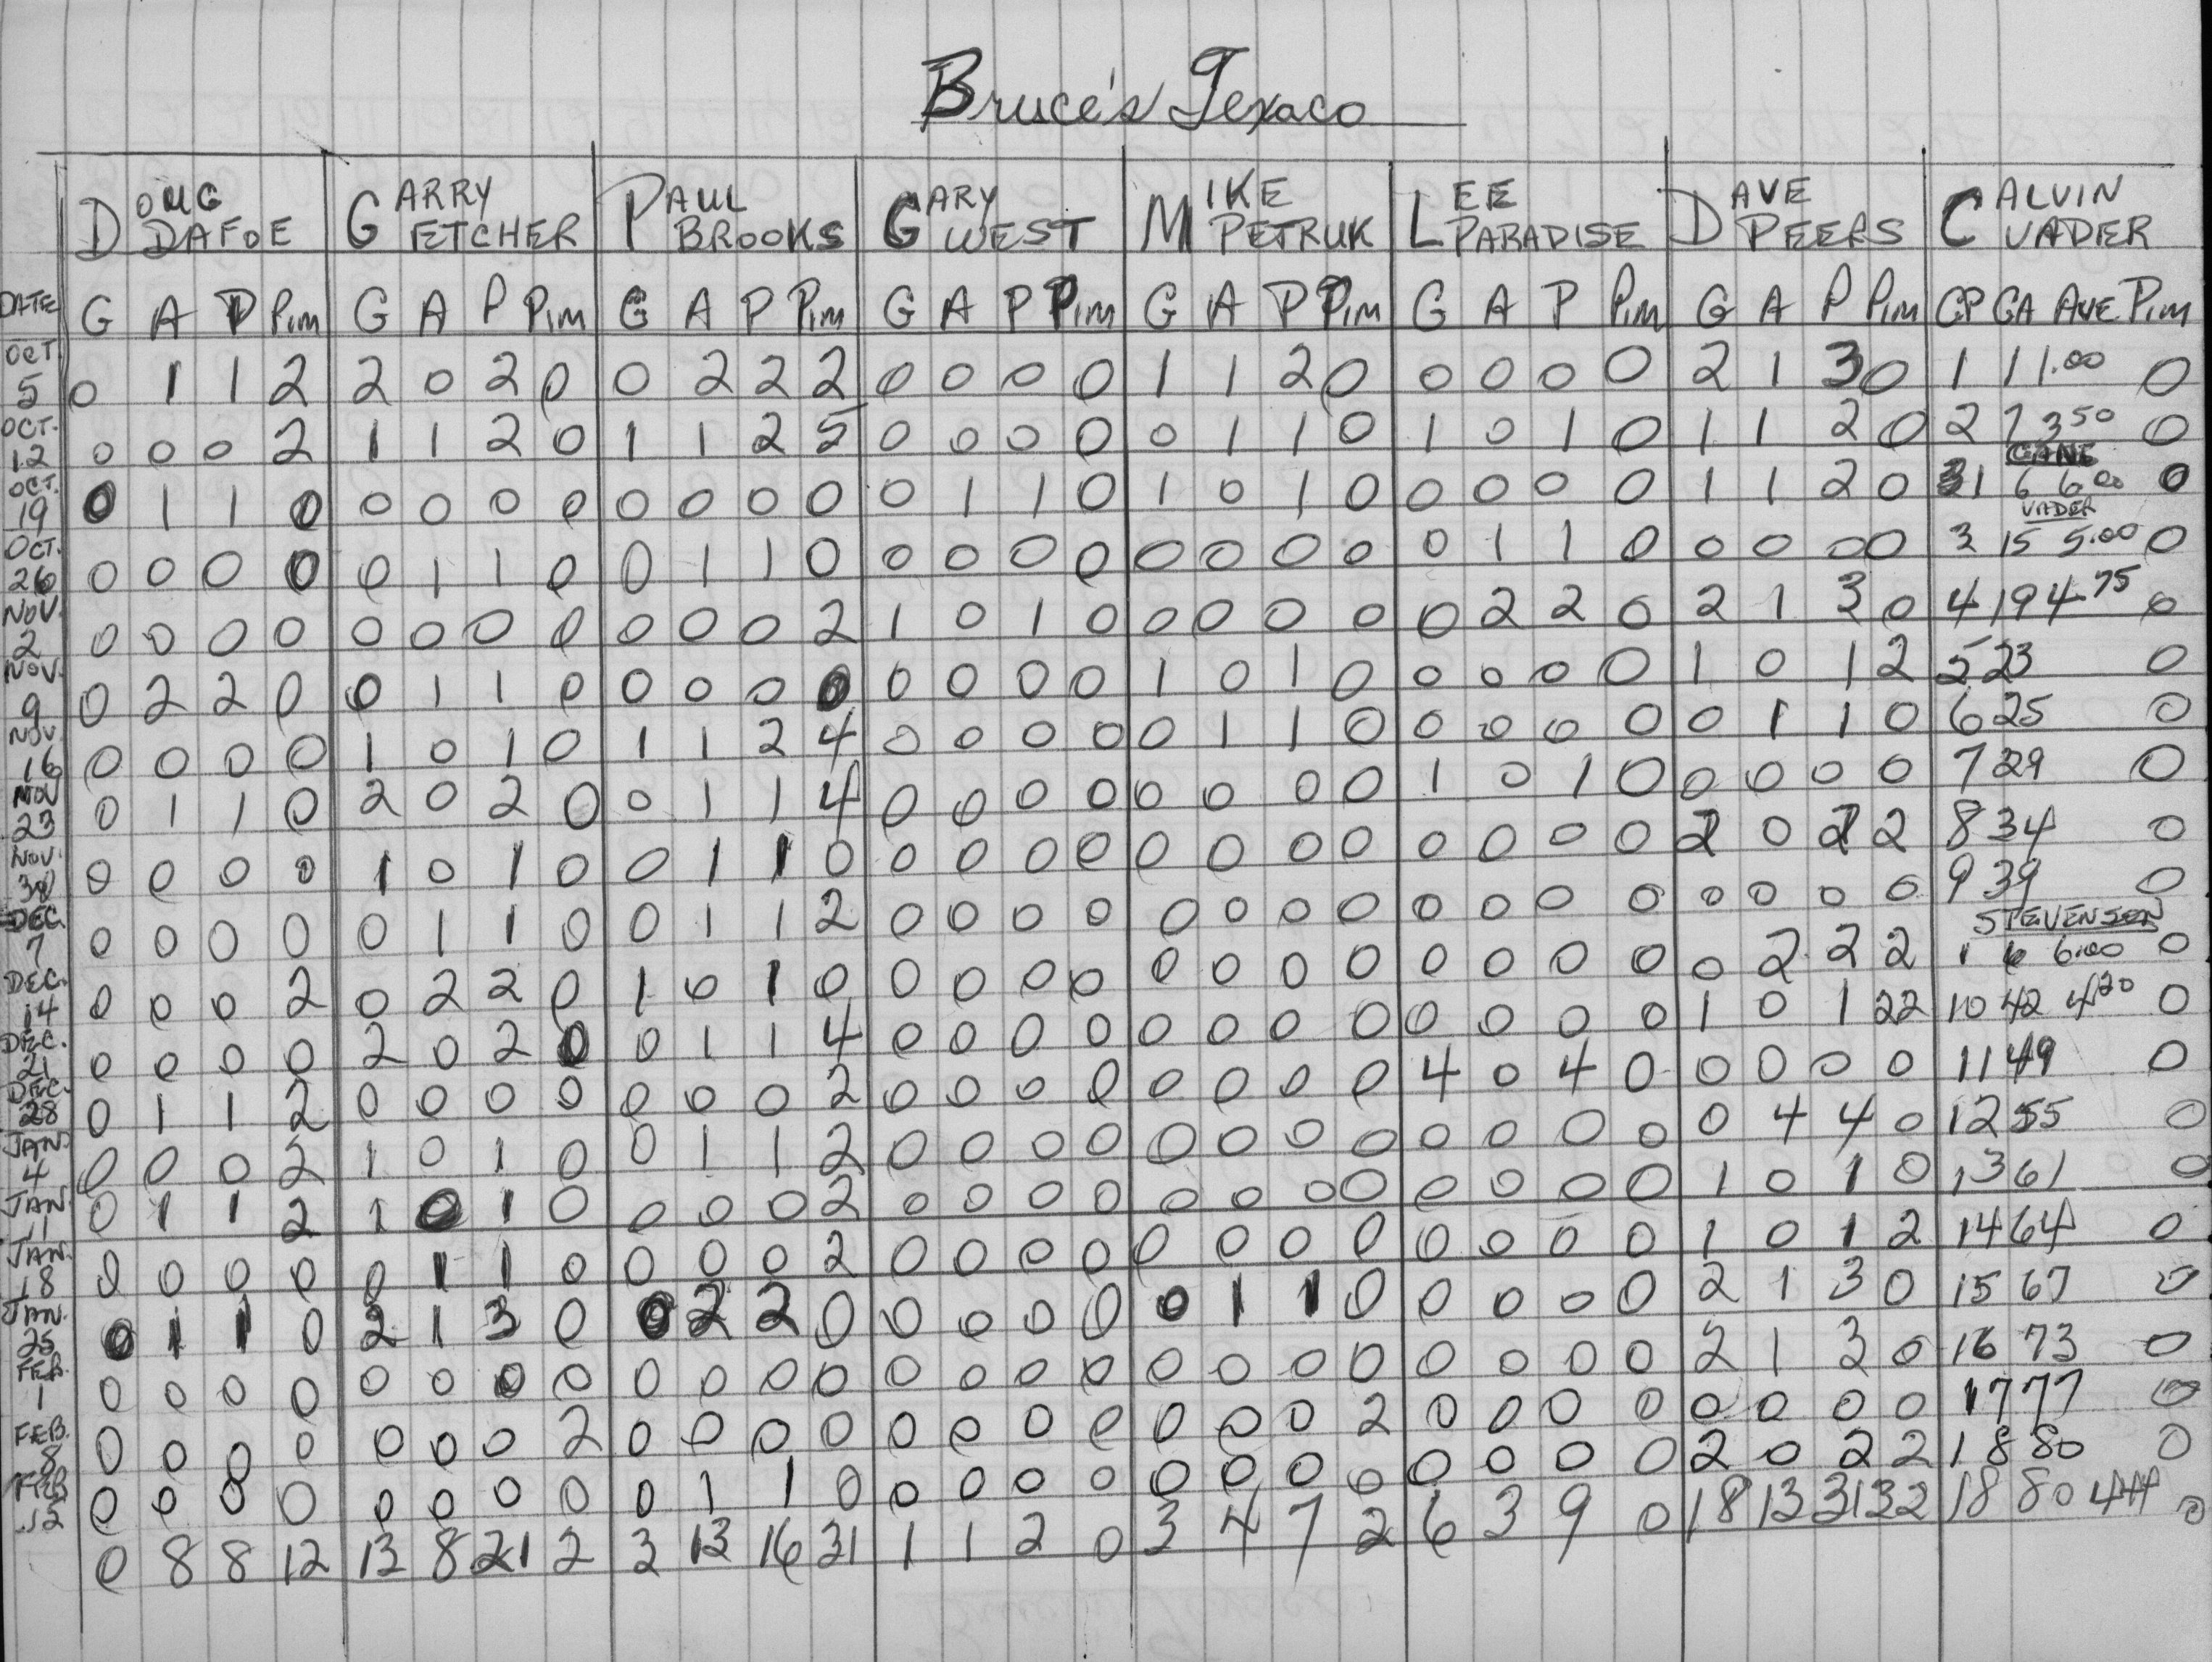 Bruce's Texaco
DOUG DAFOE GARRY FETCHER PAUL BROOKS GARY WEST MIKE PETRUK LEE PARADISE DAVE PEERS CALVIN VADER
DATE G A P Pim G A P Pim G A P Pim G A P Pim G A P Pim G A P Pim G A P Pim GP GA AVE Pim
OCT. 5 0 1 1 2 2 0 2 0 0 2 2 2 0 0 0 0 1 1 2 0 0 0 0 0 2 1 3 0 1 1 1.00 0
OCT. 12 0 0 0 2 1 1 2 0 1 1 2 5 0 0 0 0 0 1 1 0 1 0 1 0 1 1 2 0 2 7 3.50 0
CANE
OCT. 19 0 1 1 0 0 0 0 0 0 0 0 0 0 1 1 0 1 0 1 0 0 0 0 0 1 1 2 0 1 6 6.00 0
VADER
OCT. 26 0 0 0 0 0 1 1 0 0 1 1 0 0 0 0 0 0 0 0 0 0 1 1 0 0 0 0 0 3 15 5.00 0
NOV. 2 0 0 0 0 0 0 0 0 0 0 0 2 1 0 1 0 0 0 0 0 0 2 2 0 2 1 3 0 4 19 4.75 0
NOV. 9 0 2 2 0 0 1 1 0 0 0 0 0 0 0 0 0 1 0 1 0 0 0 0 0 1 0 1 2 5 23 0
NOV. 16 0 0 0 0 1 0 1 0 1 1 2 4 0 0 0 0 0 1 1 0 0 0 0 0 0 1 1 0 6 25 0
NOV 23 0 1 1 0 2 0 2 0 0 1 1 4 0 0 0 0 0 0 0 0 1 0 1 0 0 0 0 0 7 29 0
NOV. 30 0 0 0 0 1 0 1 0 0 1 1 0 0 0 0 0 0 0 0 0 0 0 0 0 2 0 2 2 8 34 0
DEC. 7 0 0 0 0 0 1 1 0 0 1 1 2 0 0 0 0 0 0 0 0 0 0 0 0 0 0 0 0 9 39 0
STEVENSEN
DEC. 14 0 0 0 2 0 2 2 0 1 0 1 0 0 0 0 0 0 0 0 0 0 0 0 0 0 2 2 2 1 6 6.00 0
DEC. 21 0 0 0 0 2 0 2 0 0 1 1 4 0 0 0 0 0 0 0 0 0 0 0 0 1 0 1 22 10 42 4.20 0
DEC. 28 0 1 1 2 0 0 0 0 0 0 0 2 0 0 0 0 0 0 0 0 4 0 4 0 0 0 0 0 11 49 0
JAN. 4 0 0 0 2 1 0 1 0 0 1 1 2 0 0 0 0 0 0 0 0 0 0 0 0 0 4 4 0 12 55 0
JAN. 11 0 1 1 2 1 0 1 0 0 0 0 2 0 0 0 0 0 0 0 0 0 0 0 0 1 0 1 0 13 61 0
JAN. 18 0 0 0 0 0 1 1 0 0 0 0 2 0 0 0 0 0 0 0 0 0 0 0 0 1 0 1 2 14 64 0
JAN. 25 0 1 1 0 2 1 3 0 0 2 2 0 0 0 0 0 0 1 1 0 0 0 0 0 2 1 3 0 15 67 0
FEB. 1 0 0 0 0 0 0 0 0 0 0 0 0 0 0 0 0 0 0 0 0 0 0 0 0 2 1 3 0 16 73 0
FEB. 8 0 0 0 0 0 0 0 2 0 0 0 0 0 0 0 0 0 0 0 2 0 0 0 0 0 0 0 0 17 77 0
FEB 12 0 0 0 0 0 0 0 0 0 1 1 0 0 0 0 0 0 0 0 0 0 0 0 0 2 0 2 2 18 80 0
0 8 8 12 13 8 21 2 3 13 16 31 1 1 2 0 3 4 7 2 6 3 9 0 18 13 31 32 18 80 4.44 0